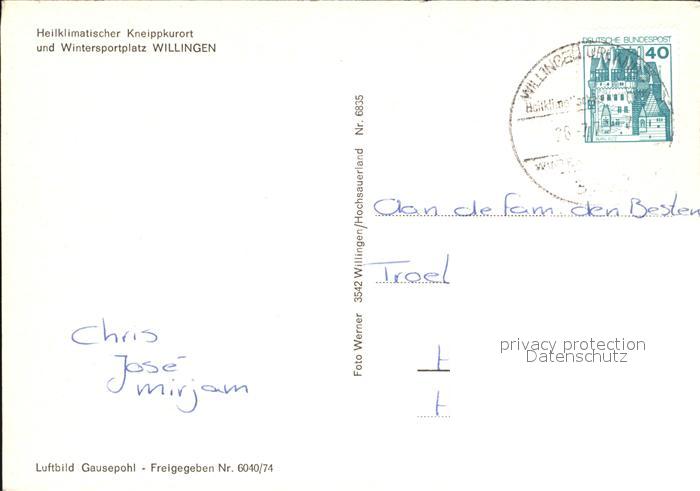 Heilklimatischer Kneippkurort
und Wintersportplatz WILLINGEN
DEUTSCHE BUNDESPOST
40
WILLINGEN
Foto Werner 3542 Willingen/Hochsauerland Nr. 6835
Aan de fam. den Besten
Troel
t
t
privacy protection
Datenschutz
Chris
José
mirjam
Luftbild Gausepohl - Freigegeben Nr. 6040/74